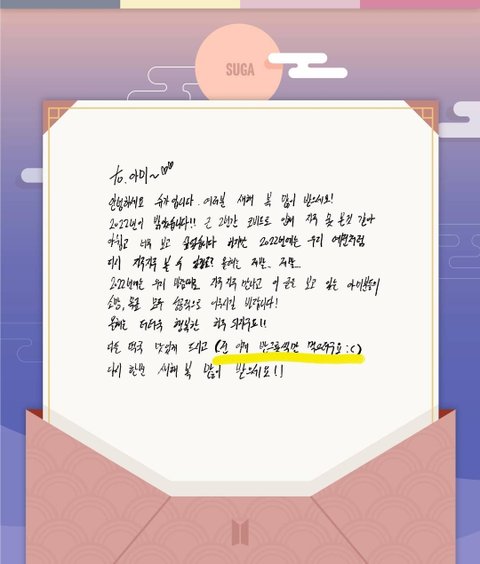 SUGA
to. 아미~♡♡
안녕하세요 슈가입니다. 여러분 새해 복 많이 받으세요!
2022년이 밝았습니다!! 근 2년간 코비드로 인해 자주 못 본것 같아
아쉽고 너무 보고 싶습니다 하지만 2022년에는 우리 예전처럼
다시 자주자주 볼 수 있겠죠? 올해는 제발.. 제발...
2022년에는 우리 방탄이들 자주 자주 만나고 이 글을 보고 있는 아미분들이
소망, 목표 모두 성공적으로 이루시길 바랍니다!
올해도 더더욱 행복한 한해 되자구요!!
다들 떡국 맛있게 드시고 (전 이제 만으로 먹어야구요 :<)
다시 한번 새해 복 많이 받으세요!!